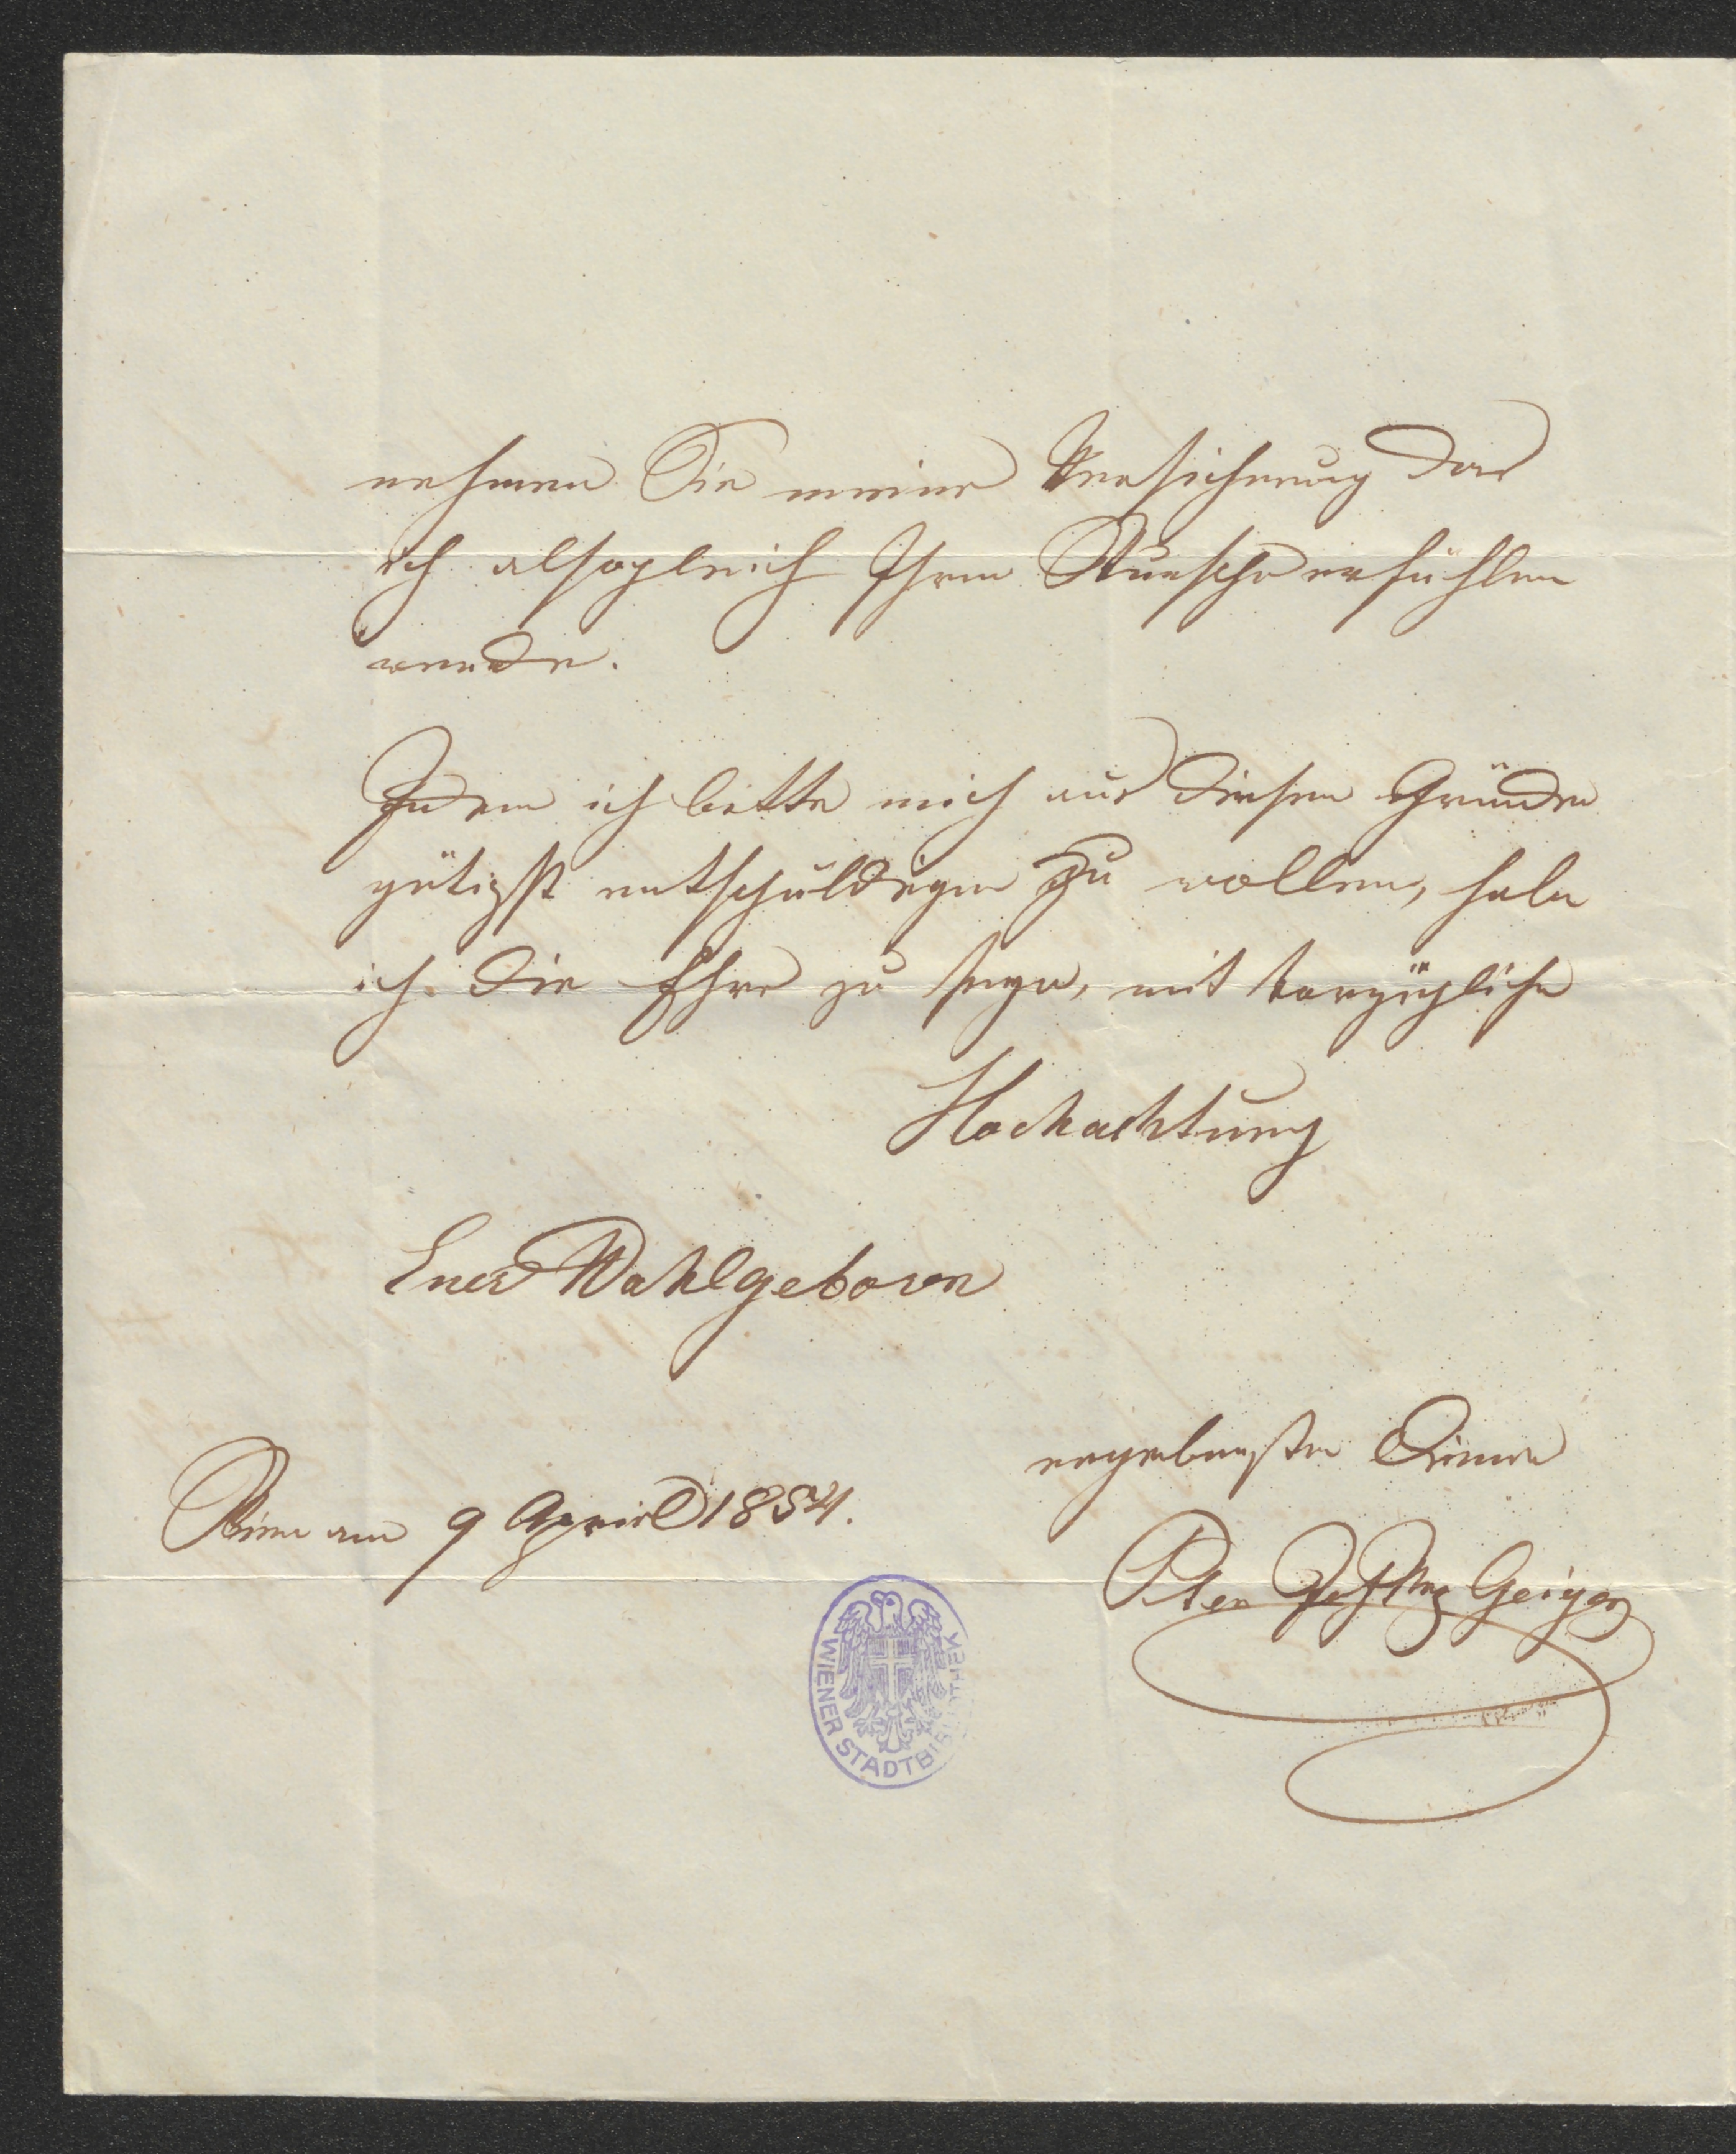 nehmen Sie meine Versicherung das
ich alsogleich Ihren Wunsche erfühlen
werde.
Indem ich bitte mich aus diesen Gründen
gütigst entschuldigen zu wollen, habe
ich die Ehre zu seyn, mit vorzüglicher
Hochachtung
Euer Wohlgeboren
ergebenster Diener
Wien am 9 April 1854.
Peter Joh Nep Geiger
WIENER STADTBIBLIOTHEK